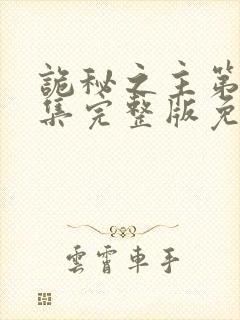 詭秘之主第
集完整版免
雲霄車手